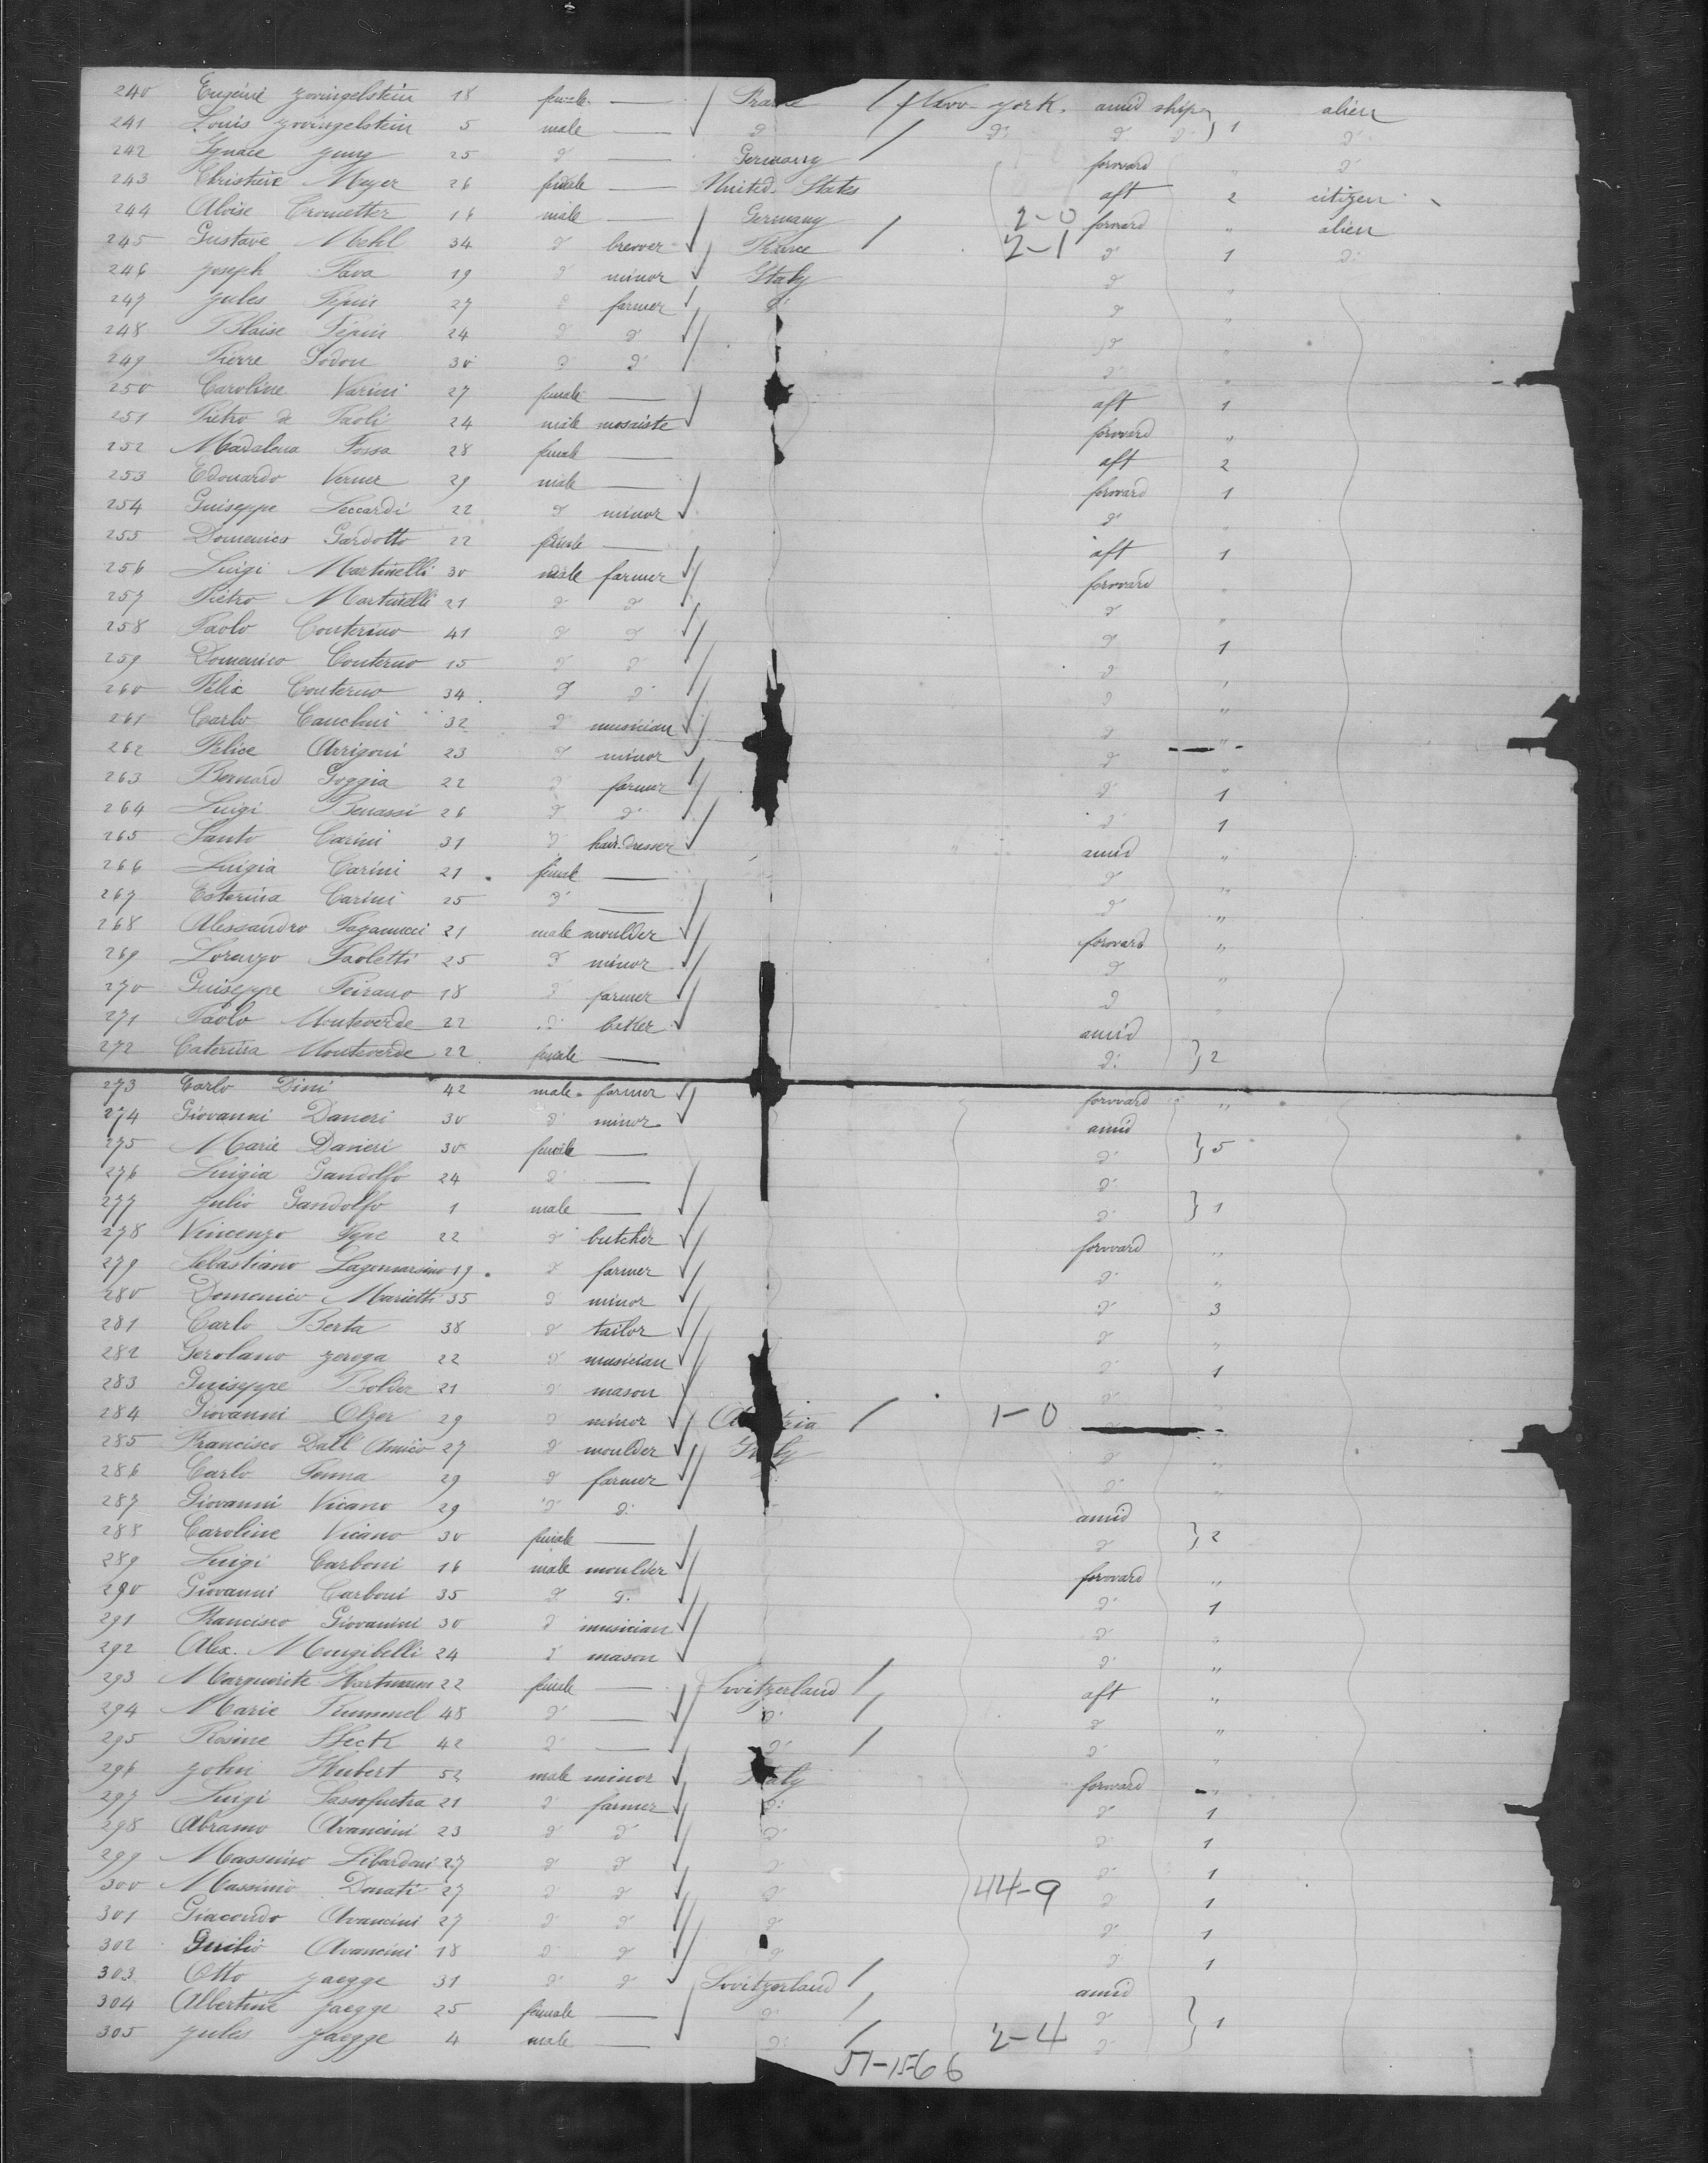 240 Eugénie Zwingelstein 18 female — France New-york. amid ship alien
241 Louis Zwingelstein 5 male — d° d° d° d° } 1 d°
242 Ignace Jung 25 d° — Germany forward " d°
243 Christine Meyer 26 female — United States aft 2 citizen
244 Aloise Crometter 16 male — Germany 2-0 forward " alien
245 Gustave Mehl 34 d° brewer France 2-1 d° 1 d°
246 Joseph Pava 19 d° minor Italy d° "
247 Jules Pépin 27 d° farmer d° d° "
248 Blaise Pépin 24 d° d° d° "
249 Pierre Godon 30 d° d° d° "
250 Caroline Varini 27 female — aft 1
251 Pietro de Paoli 24 male mosaiste forward "
252 Madalena Fossa 28 female — aft 2
253 Edouardo Verner 29 male — forward 1
254 Guiseppe Leccardi 22 d° minor d° "
255 Domenica Gardotto 22 female — aft 1
256 Luigi Martinelli 30 male farmer forward "
257 Pietro Martinelli 21 d° d° d° "
258 Paolo Conterino 41 d° d° d° 1
259 Domenico Conterno 15 d° d° d° "
260 Félix Conterno 34 d° d° d° "
261 Carlo Cauchini 32 d° musician d° "
262 Felice Arrigoni 23 d° minor d° "
263 Bernard Goggia 22 d° farmer d° 1
264 Luigi Benassi 26 d° d° d° 1
265 Santo Carini 31 d° hair-dresser amid "
266 Luigia Carini 21 female — d° "
267 Esterina Carini 25 d° — d° "
268 Alessandro Paganucci 21 male moulder forward "
269 Lorenzo Paoletti 25 d° minor d° "
270 Guiseppe Peirano 18 d° farmer d° "
271 Paolo Monteverde 22 d° baker amid
272 Caterina Monteverde 22 female — d° } 2
273 Carlo Dini 42 male farmer forward "
274 Giovanni Daneri 30 d° minor amid
275 Marie Daneri 30 female — d° } 5
276 Luigia Gandolfo 24 d° — d°
277 Julio Gandolfo 1 male — d° } 1
278 Vincenzo Pepe 22 d° butcher forward "
279 Sebastiano Lagomarsino 19 d° farmer d° "
280 Domenico Marietti 35 d° minor d° 3
281 Carlo Berta 38 d° tailor d° "
282 Gerolano Zerega 22 d° musician d° 1
283 Guiseppe Bolder 21 d° mason d° "
284 Giovanni Olzer 29 d° minor Austria 1-0 d° "
285 Francisco Dall'Amico 27 d° moulder Italy d° "
286 Carlo Penna 29 d° farmer d° d° "
287 Giovanni Vicano 29 d° d° amid
288 Caroline Vicano 30 female — d° } 2
289 Luigi Carboni 16 male moulder forward "
290 Giovanni Carboni 35 d° d° d° 1
291 Francisco Giovanini 30 d° musician d° "
292 Alex. Mongibelli 24 d° mason d° "
293 Marguerite Hartmann 22 female — Switzerland aft "
294 Marie Rummel 48 d° — d° d° "
295 Rosine Steck 42 d° — d° d° "
296 John Hubert 52 male minor Italy forward "
297 Luigi Sassopietra 21 d° farmer d° d° 1
298 Abramo Avancini 23 d° d° d° d° 1
299 Massimo Libardoni 27 d° d° d° d° 1
300 Massimo Donati 27 d° d° d° 44-9 d° 1
301 Giacondo Avancini 27 d° d° d° d° 1
302 Guilio Avancini 18 d° d° d° d° 1
303 Otto Jaegge 31 d° d° Switzerland amid
304 Albertine Jaegge 25 female — d° d° } 1
305 Jules Jaegge 4 male — d° 2-4 d°
51-15-66